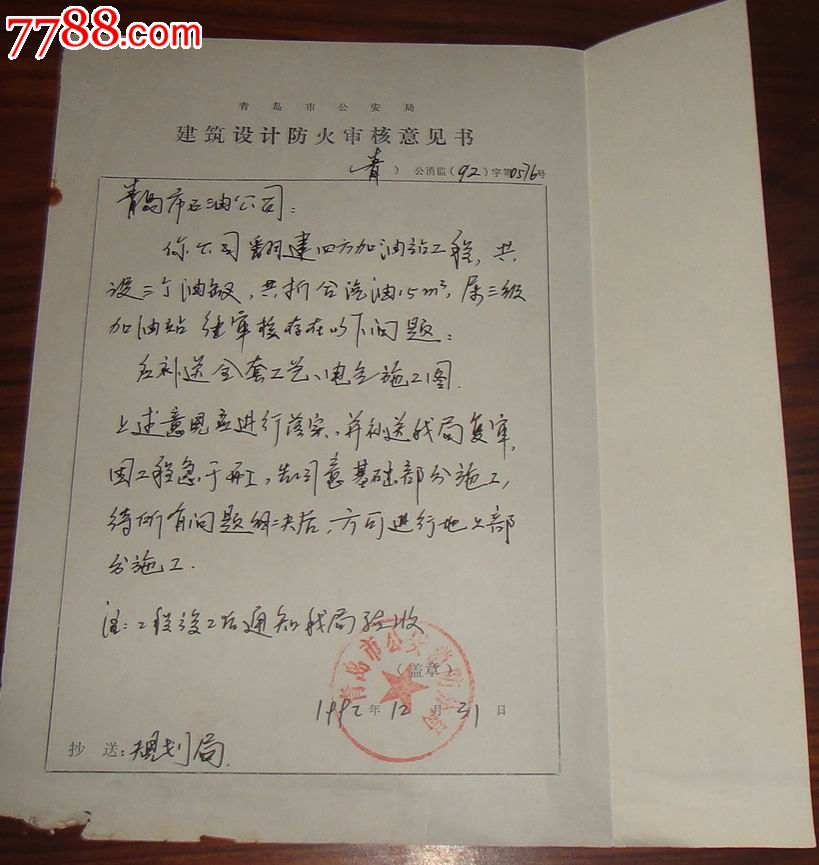 7788.com
青岛市公安局
建筑设计防火审核意见书
（青）公消监（92）字第0576号
青岛市石油公司：
你公司翻建四方加油站工程，共
设三个油罐，共折合汽油15m³，属三级
加油站 经审核存在以下问题：
应补送全套工艺、电气施工图．
上述意见应进行落实，并补送我局复审，
因工程急于开工，先同意基础部分施工，
待所有问题解决后，方可进行地上部
分施工．
注：工程竣工后通知我局验收
（盖章）
青岛市公安
1992年12月31日
抄送：规划局．